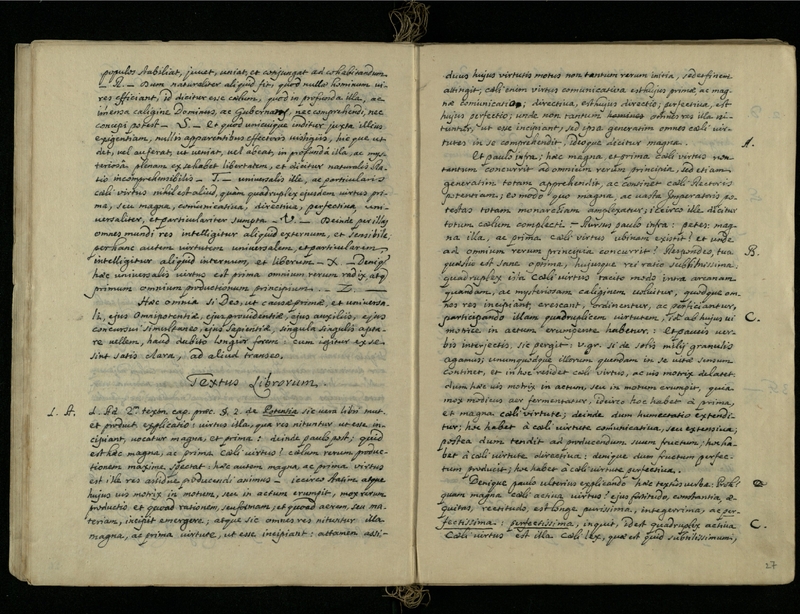 populos stabiliat, juvet, uniat, et conjungat ad cohabitandum.
— R. — Dum naturaliter aliquid fit, quod nullae hominum vi-
res efficiant, id dicitur esse coelum, quod in profunda illa, ac
immensa caligine Dominus, ac Gubernator, nec comprehendi, nec
concipi potest — S. — Et quod unicuique inditur juxta illius
exigentiam, nullis apparentibus effectoris vestigiis, hic quae ut
det, vel auferat, ut uniat, vel abeat, in profunda illa, ac mys-
teriosa plenam ex se habet libertatem, et dicitur naturalis Ra-
tio incomprehensibilis — T. — universalis ille, ac particularis
caeli virtus nihil est aliud, quam quadruplex ejusdem virtus pri-
ma, seu magna, comunicativa, directiva, perfectiva uni-
versaliter, et particulariter sumpta — V. — Deinde per illas
omnes mundi res intelligitur aliquid externum, et sensibile
per hanc autem virtutem universalem, et particularem
intelligitur aliquid internum, et liberum — X. — Deniq3
haec universalis virtus est prima omnium rerum radix, atq3
primum omnium productionum principium. — Z. —
Haec omnia si Deo, ut causae primae, et universa-
li, ejus Omnipotentiae, ejus providentiae, ejus auxiliis, ejus
concursui simultaneo, ejus sapientiae, singula singulis apta-
re vellem, haud dubito longior forem. cum igitur ex se
sint satis clara, ad aliud transeo.
Textus Librorum.
1. A. 1. Ad 2. textu cap. praec. §. 2. de Potentia sic verba libri
et product. explicatio: virtus illa, qua res nituntur ut esse in-
cipiant, vocatur magna, et prima: deinde paulo post; quid
est haec magna, ac prima Coeli virtus? coelum rerum produc-
tionem maxime spectat: haec autem magna, ac prima virtus
est ille res assidue producendi animus — idcirco statim atque
hujus vis motrix in motum, seu in actum erumpit, mox rerum
productio et quoad rationem, seu formam, et quoad aerem, seu ma-
teriam, incipit emergere, atque sic omnes res nituntur illa
magna, ac prima virtute, ut esse incipiant: actamen assi-
duus hujus virtutis motus non tantum rerum initia, sed et finem
attingit; caeli enim virtus comunicativa est hujus primae, ac mag-
nae comunicatio; directiva, est hujus directio; perfectiva, est
hujus perfectio; unde non tantum homines omnes res illa ni-
tuntur, ut esse incipiant; sed ipsa generatim omnes caeli vir-
tutes in se comprehendit, ideoque dicitur magna. A.
Et paulo infra; haec magna et prima caeli virtus non
tantum concurrit ad omnium rerum principia, sed etiam
generatim totam apprehendit, ac continet caeli Rectoris
potentiam; eo modo quo magna, ac vasta Imperatoris po-
testas totam monarchiam amplexatur; idcirco ille dicitur
totum coelum complecti. — Rursus paulo infra: petes: mag-
na illa, ac prima caeli virtus ubinam existit? et unde
ad omnium rerum principia concurrit? Respondeo, tua B.
quaestio est sane optima, hujusque rei ratio sublimissima.
quadruplex ista caeli virtus tacito modo intra arcanam
quandam, ac mysteriosam caliginem volvitur, quodque om-
nes res incipiant, crescant, ordinentur, ac perficiantur,
participando illam quadruplicem virtutem, id ab hujus vi C.
motrice in actum erumpente habetur: Et paucis ver-
bis interjectis, sic pergit: v. gr. si de sotis milij granulis
agamus; unumquodque illorum quendam in se vitae sensum
continet, et in hoc residet caeli virtus, ac vis motrix delatet.
dum haec vis motrix in actum, seu in motum erumpit, quia
mox modicus aer fermentatur, idcirco hoc habet a prima,
et magna caeli virtute; deinde dum humectatio extendi-
tur; hoc habet a caeli virtute comunicativa, seu extensiva,
postea dum tendit ad producendum suum fructum; hoc ha-
bet a caeli virtute directiva; denique dum fructum perfec-
tum producit; hoc habet a caeli virtute perfectiva.
Denique paulo ulterius explicando haec textus verba: Proh! D.
quam magna caeli activa virtus! ejus fortitudo, constantia, ae-
quitas, rectitudo, est longe purissima, integerrima, ac per-
fectissima: perfectissima, inquit, id est quadruplex activa C.
Caeli virtus est illa caeli lex, quae est quid subtilissimum,
27